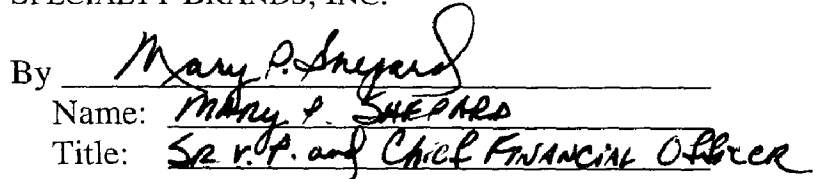 SPECIALTY BRANDS, INC.
By Mary P. Shepard
Name: MARY P. SHEPARD
Title: SR V.P. and Chief FINANCIAL OFFICER